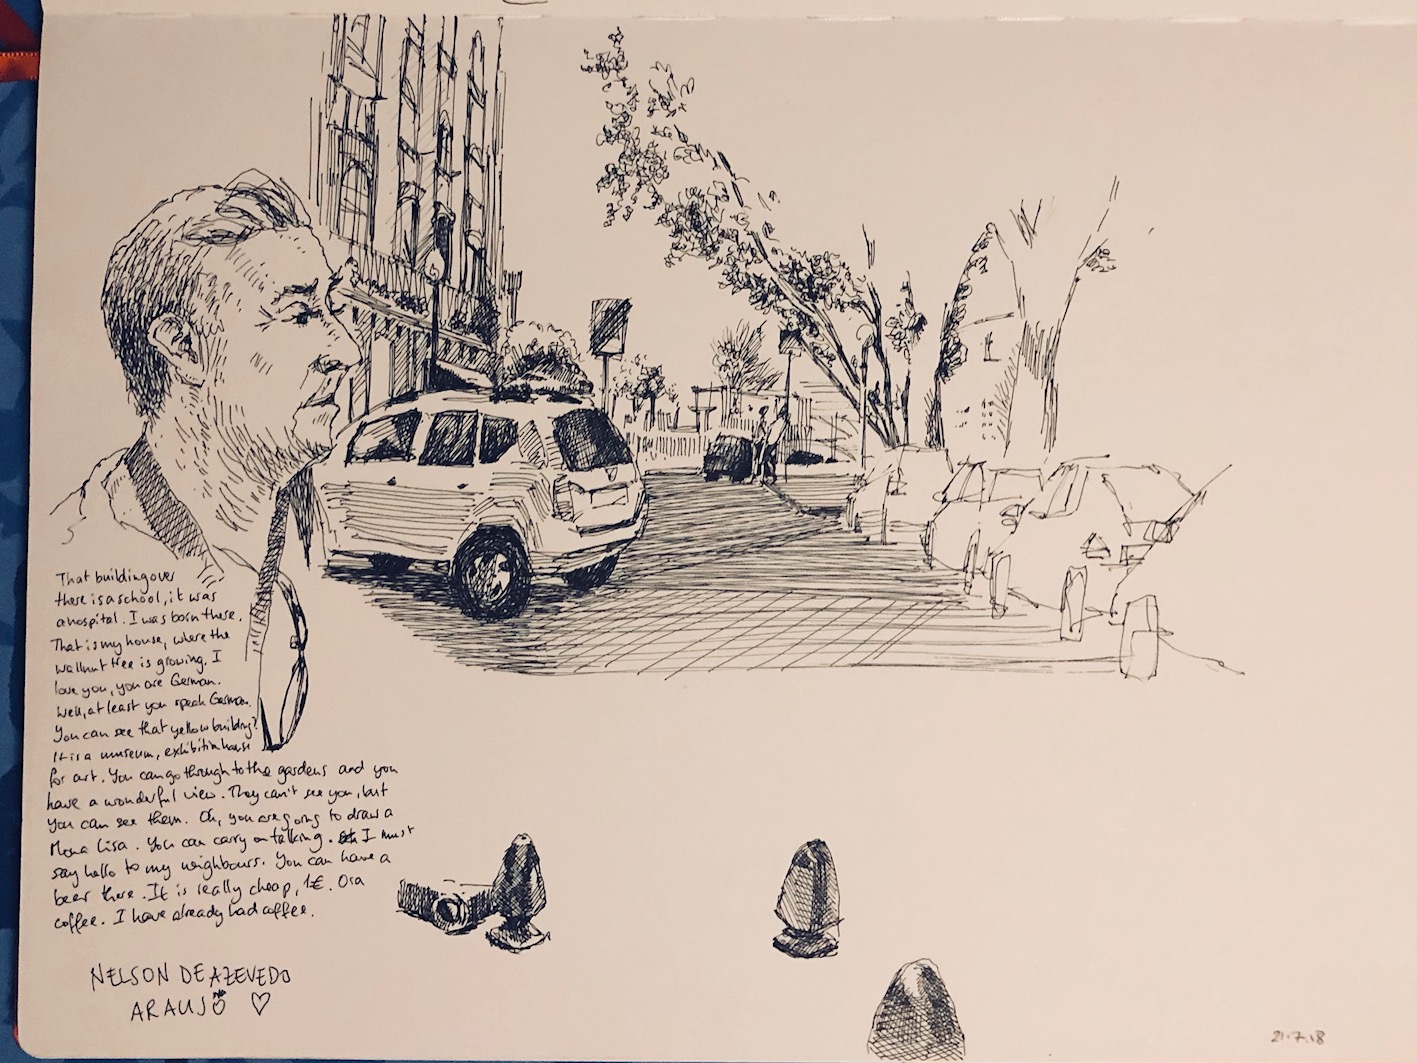 That building over
there is a school, it was
a hospital. I was born there.
That is my house, where the
wallnut tree is growing. I
love you, you are German.
Well, at least you speak German.
You can see that yellow building?
It is a museum, exhibition house
for art. You can go through to the gardens and you
have a wonderful view. They can't see you, but
you can see them. Oh, you are going to draw a
Mona Lisa. You can carry on talking. I must
say hello to my neighbours. You can have a
beer there. It is really cheap, 1€. Or a
coffee. I have already had coffee.
NELSON DE AZEVEDO
ARAUJO ♡
21.7.18